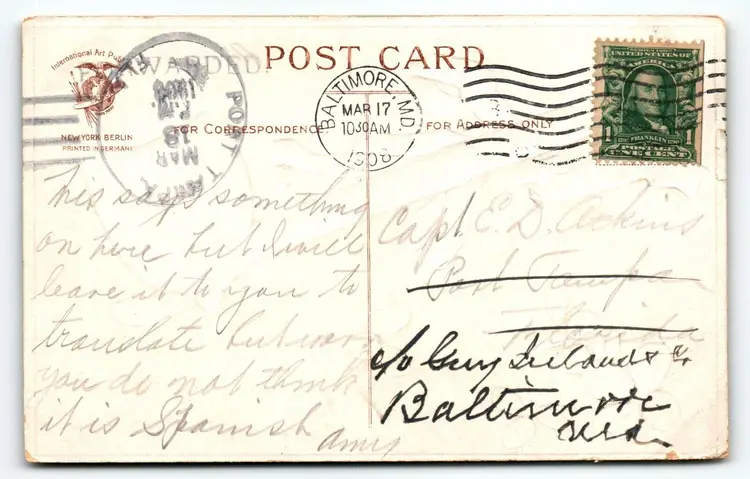 International Art Publ
NEW YORK BERLIN
PRINTED IN GERMANY.
FORWARDED
POST TAMPA
MAR
POST CARD
FOR CORRESPONDENCE
FOR ADDRESS ONLY
BALTIMORE, MD.
MAR 17
1030AM
1908
SERIES 1902
UNITED STATES OF
AMERICA
1 FRANKLIN 1
POSTAGE
ONE CENT
This says something
on here but I will
leave it to you to
translate but warn
you do not think
it is Spanish
Amy
Capt. E. D. Askins
Port Tampa
Florida
c/o Guy &
Baltimore
Md.